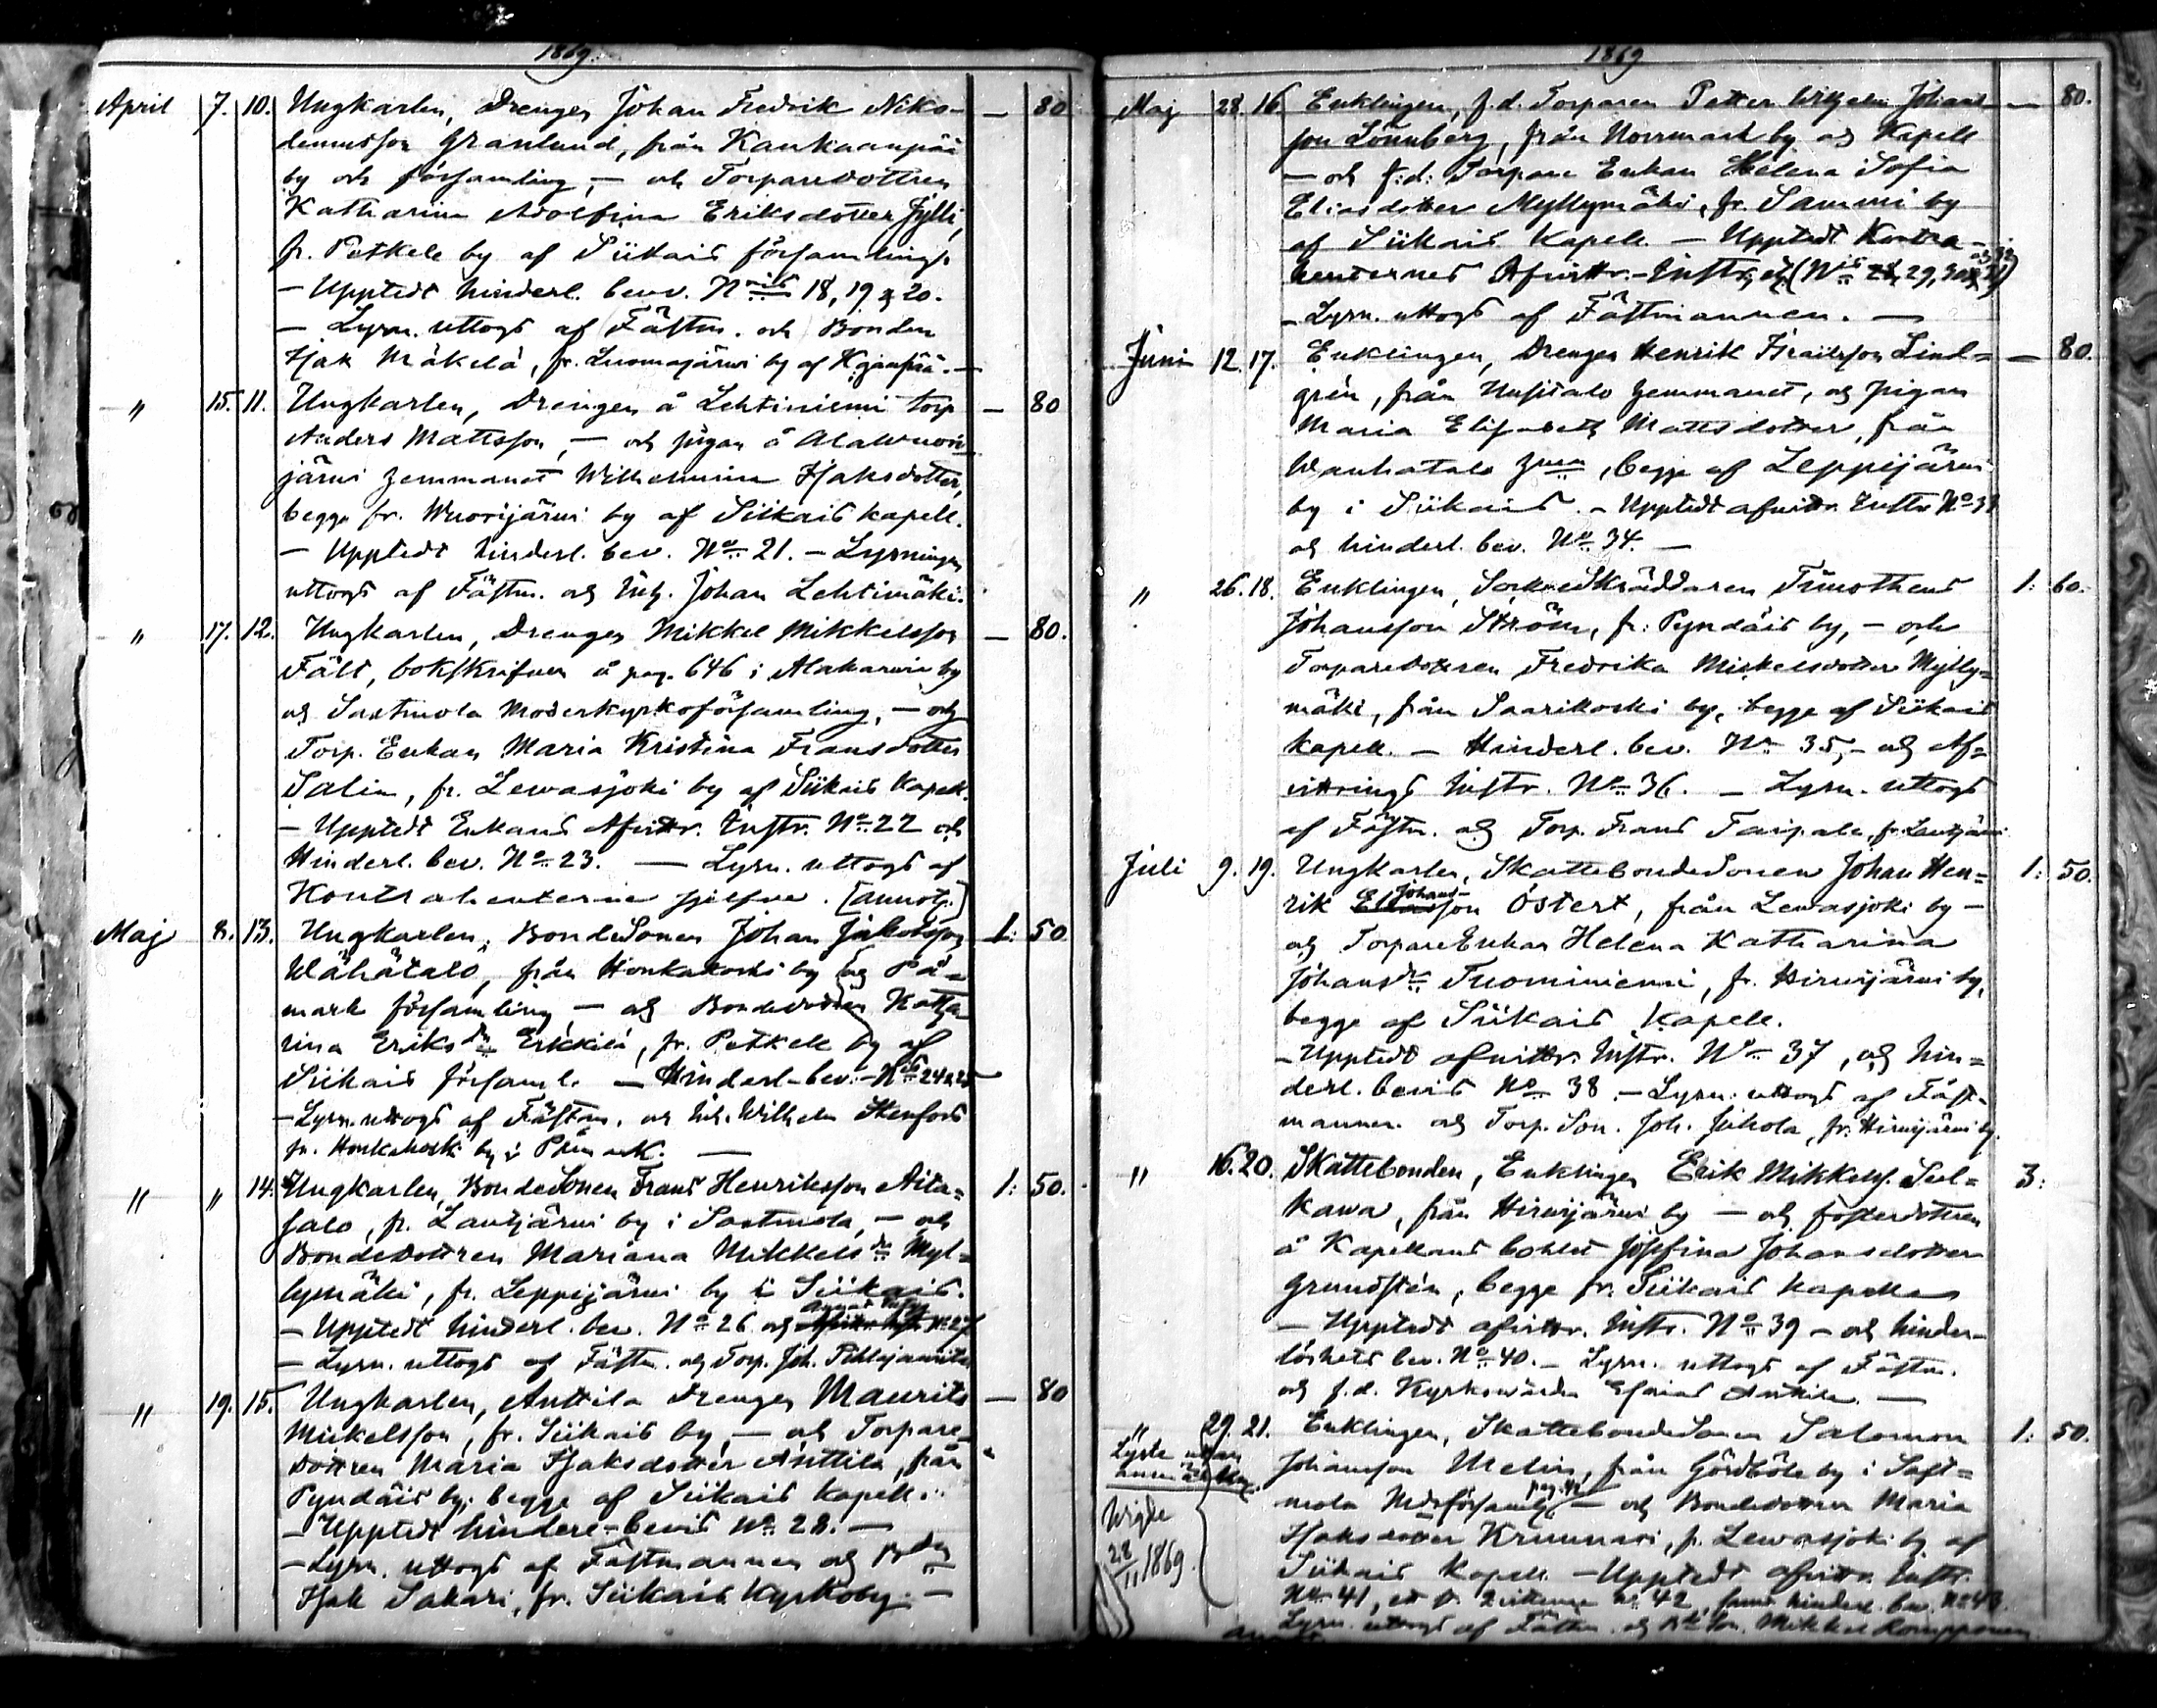 1869.
April 7. 10. Ungkarlen, Drengen Johan Fredrik Niko- — 80
demusson Granlund, från Kankaanpää
by och församling, — och Torparedottren
Katharina Adolfina Eriksdotter Jylli,
fr. Petkele by af Siikais församling.
— Upptedt hinderl. bew. N:ris 18, 19 & 20.
— Lysn. uttogs af Fästm. och Bonden
Isak Mäkelä, fr. Luomajärwi by af
" 15. 11. Ungkarlen, Drengen å Lehtiniemi torp — 80
Anders Mattsson, — och pigan å Alawuori-
järwi hemmanet Wilhelmina Isaksdotter,
begge fr. Wuorijärwi by af Siikais kapell.
— Upptedt hinderl. bew. No 21. — Lysningen
uttogs af Fästm. och Inh. Johan Lehtimäki.
" 17. 12. Ungkarlen, Drengen Mikkel Mikkelsson — 80.
Fält, bokskrifwen å pag. 646 i Alakarwia by
og Sastmola Moderkyrkoförsamling, — och
Torp. Enkan Maria Kristina Fransdotter
Salin, fr. Lewasjoki by af Siikais Kapell.
— Upptedt Enkans Afwittr. Instr. No 22 och
Hinderl. bew. No 23. — Lysn. uttogs af
Kontrahenterne sjelfwe. [annot.]
Maj 8. 13. Ungkarlen, BondeSonen Johan Jakobsson 1: 50
Wähätalo, från Honkakoski by og På-
mark församling — och Bondedottren Katha
rina Eriksdr Erkkilä, fr. Petkele by af
Siikais församl. — Hinderl. bew. N:is 24 & 25
— Lysn. uttogs af Fästm. och Inh. Wilhelm Stenfors
fr. Honkakoski by i Påmark. —
" " 14. Ungkarlen, BondeSonen Frans Henriksson Aita- 1: 50.
salo, fr. Lautjärwi by i Sastmola, — och
Bondedottren Mariana Mikkelsdr Myl-
lymäki, fr. Leppijärwi by i Siikais.
— Upptedt hinderl. bew. No 26 och No 27
— Lysn. uttogs af Fästm. och Torp. Joh. Pihlajamäki
" 19. 15. Ungkarlen, Anttila Drengen Maurits — 80
Mickelsson, fr. Siikais by, — och Torpare-
dottren Maria Isaksdotter Anttila, från
Pyndäis by, begge af Siikais Kapell.
— Upptedt hinderl. bewis No 28. —
— Lysn. uttogs af Fästmannen och Bden
Isak Sakari, fr. Siikais Kyrkoby. —
1869
Maj 28. 16. Enklingen, f.d. Torparen Petter Wilhelm Johans- — 80.
son Lönnberg, från Norrmark by og Kapell
— och f.d. Torpare Enkan Helena Sofia
Eliasdotter Myllymäki, fr. Sammi by
af Siikais Kapell. — Upptedt Kontra-
henternes Afwittr. Instr. (N:is 28, 29, 30
— Lysn. uttogs af Fästmannen. —
Juni 12. 17. Enklingen, Drengen Henrik Israelsson Lind- — 80.
grén, från Uusitalo hemmanet, och pigan
Maria Elisabeth Mattsdotter, från
Wanhatalo hmn, begge af Leppijärwi
by i Siikais. — Upptedt afwittr. Instr. No 33
och hinderl. bew. No 34. —
" 26. 18. Enklingen, SockneSkräddaren Timotheus 1: 60.
Johansson Ström, fr. Pyndäis by, — och
Torparedottren Fredrika Mickelsdotter Mylly-
mäki, från Saarikoski by, begge af Siikais
kapell. — Hinderl. bew. No 35, — och Af-
wittrings Instr. No 36. — Lysn. uttogs
af Fästm. och Torp. Frans Taipale, fr. Lautjärwi
Juli 9. 19. Ungkarlen, SkattebondeSonen Johan Hen- 1: 50.
rik Johansson Östert, från Lewasjoki by —
och TorpareEnkan Helena Katharina
Johansdr Tuominiemi, fr. Hirwijärwi by,
begge af Siikais Kapell.
— Upptedt afwittr. Instr. No 37, och hin-
derl. bewis No 38. — Lysn. uttogs af Fäst-
mannen och Torp. Son. Joh. Juhola, fr. Hirwijärwi by.
" 16. 20. Skattebonden, Enklingen Erik Mikkelss. Sel- 3:
kawa, från Hirwijärwi by — och fosterdottren
å Kapellans bohlet Josefina Johansdotter
Grundstén, begge fr. Siikais Kapell
— Upptedt afwittr. Instr. No 39 — och hinder-
löshets bew. No 40. — Lysn. uttogs af Fästm.
och f.d. Kyrkowärden Esaias Anttila. —
" 29. 21. Enklingen, SkattebondeSonen Salomon 1: 50.
Lyste utan
Johansson Melin, från Gördböle by i Sast-
mola Mdrförsaml. — och Bondedottren Maria
Wigde 28/11 1869.
Isaksdotter Krunnari, fr. Lewasjoki by af
Siikais Kapell. — Upptedt afwittr. Instr.
No 41, 42, samt hinderl. bew. No 43.
Lysn. uttogs af Fästm. och Mikkel Romppanen